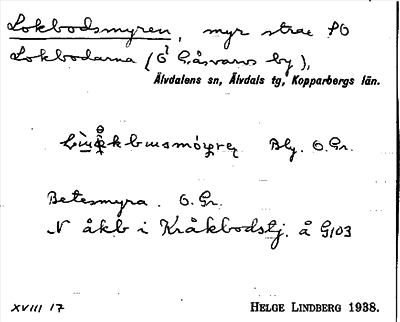 Lokbodsmyren, myr strax SO
Lokbodarna (O Gåsvarvs by),
Älvdalens sn, Älvdals tg, Kopparbergs län.
Blg. O. Gr.
Betesmyra. O. Gr.
N åkb i Kråkbodstj. å G103
XVIII 17 HELGE LINDBERG 1938.